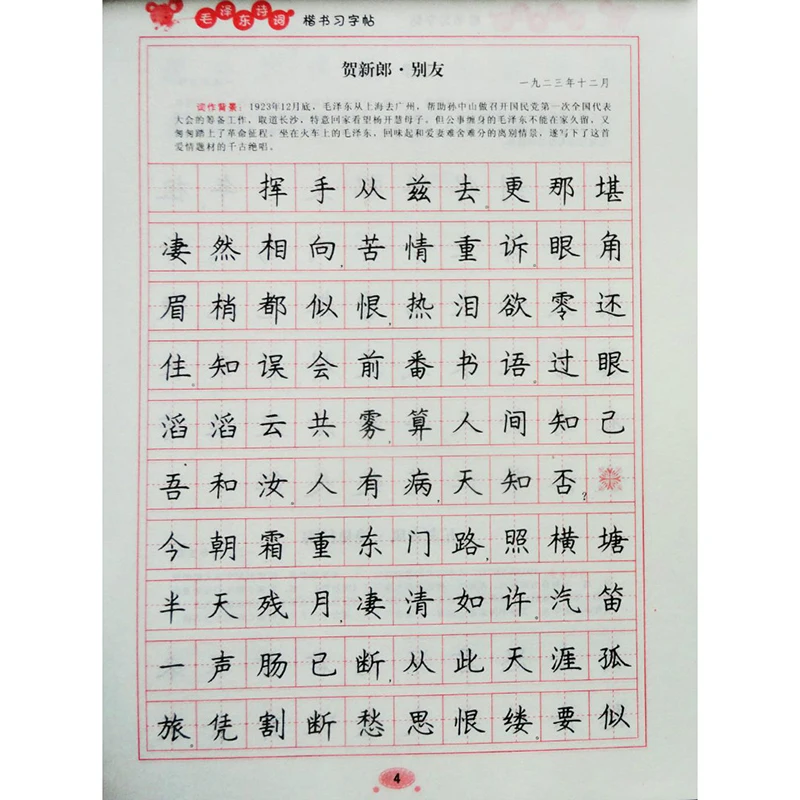 毛泽东诗词 楷书习字帖
贺新郎·别友
一九二三年十二月
词作背景：1923年12月底，毛泽东从上海去广州，帮助孙中山做召开国民党第一次全国代表
大会的筹备工作，取道长沙，特意回家看望杨开慧母子。但公事缠身的毛泽东不能在家久留，又
匆匆踏上了革命征程。坐在火车上的毛泽东，回味起和爱妻难舍难分的离别情景，遂写下了这首
爱情题材的千古绝唱。
挥手从兹去。更那堪
凄然相向，苦情重诉。眼角
眉梢都似恨，热泪欲零还
住。知误会前番书语。过眼
滔滔云共雾，算人间知己
吾和汝。人有病，天知否？
今朝霜重东门路，照横塘
半天残月，凄清如许。汽笛
一声肠已断，从此天涯孤
旅。凭割断愁思恨缕。要似
4